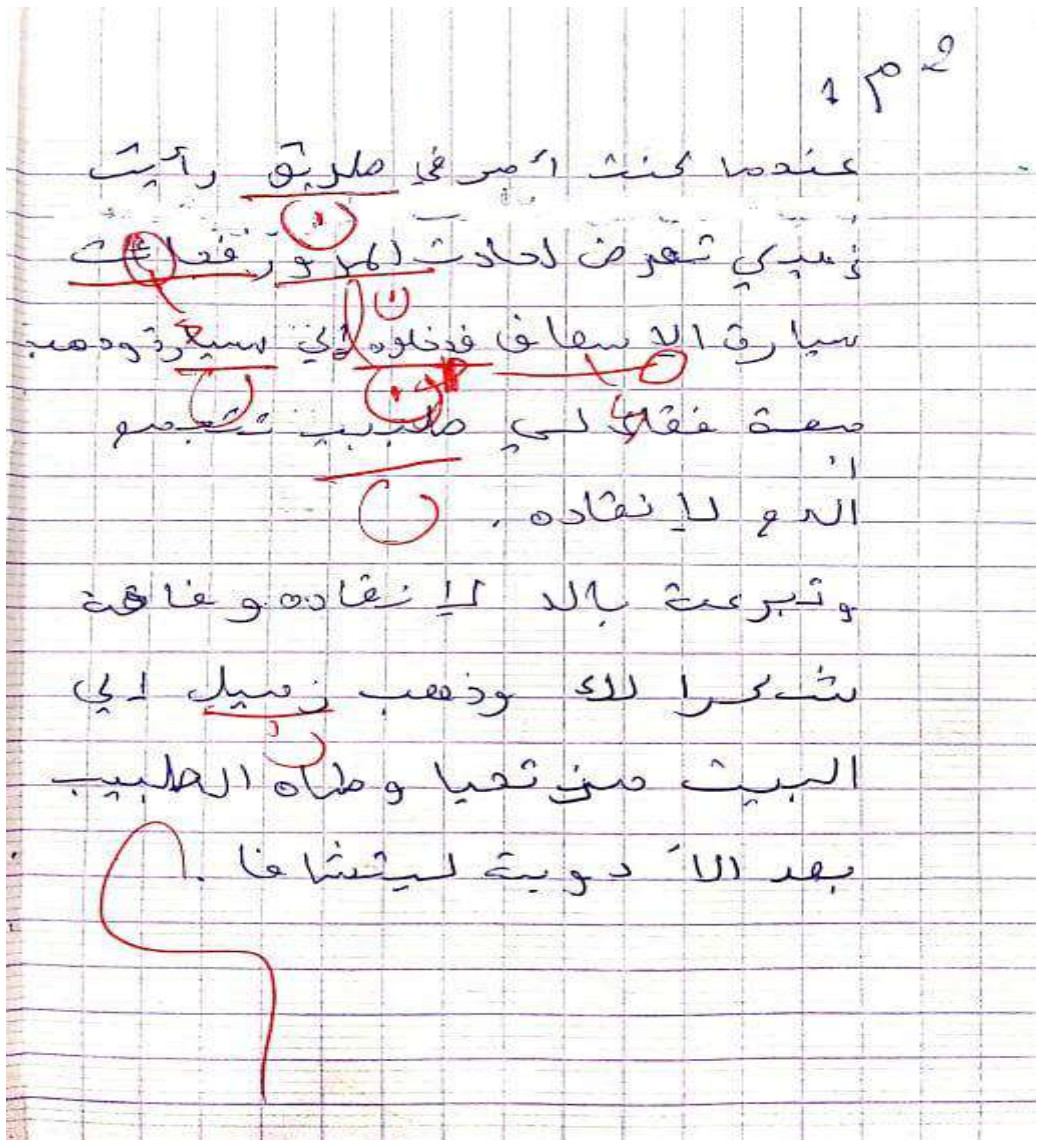 2 م 1
عندما كنت أمر في طريق رأيت
زميلي تعرض لحادت لمرور فجاءت
سيارة الاسعاف فدخلوه إلي سيعرة وذهب
معة فقال لي طبيب نتجمو
الدم لإنقاده.
وتبرعة بالد لإنقاده و
شكرا لك وذهب زميل الي
البيت من وطاه الطبيب
بعد الأدوية ليتشافا.